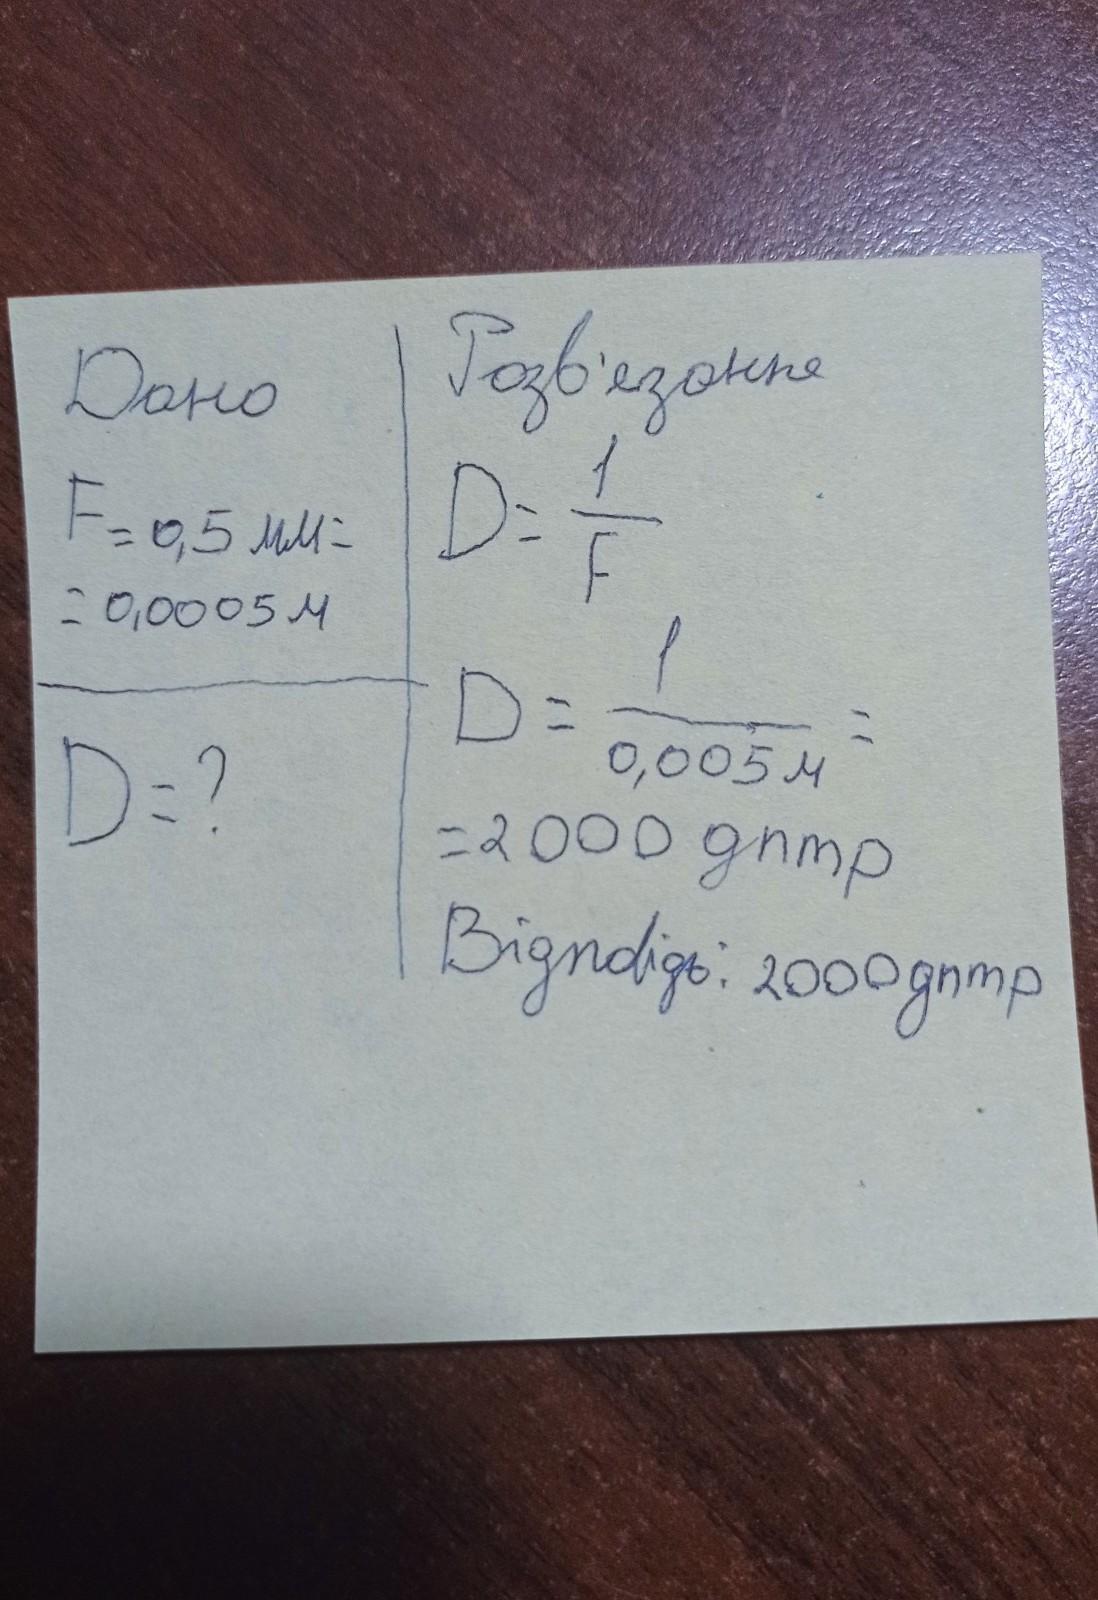 Дано
F = 0,5 мм =
= 0,0005 м
D = ?
Розв'язання
D = 1/F
D = 1/0,005 м =
= 2000 дптр
Відповідь: 2000 дптр